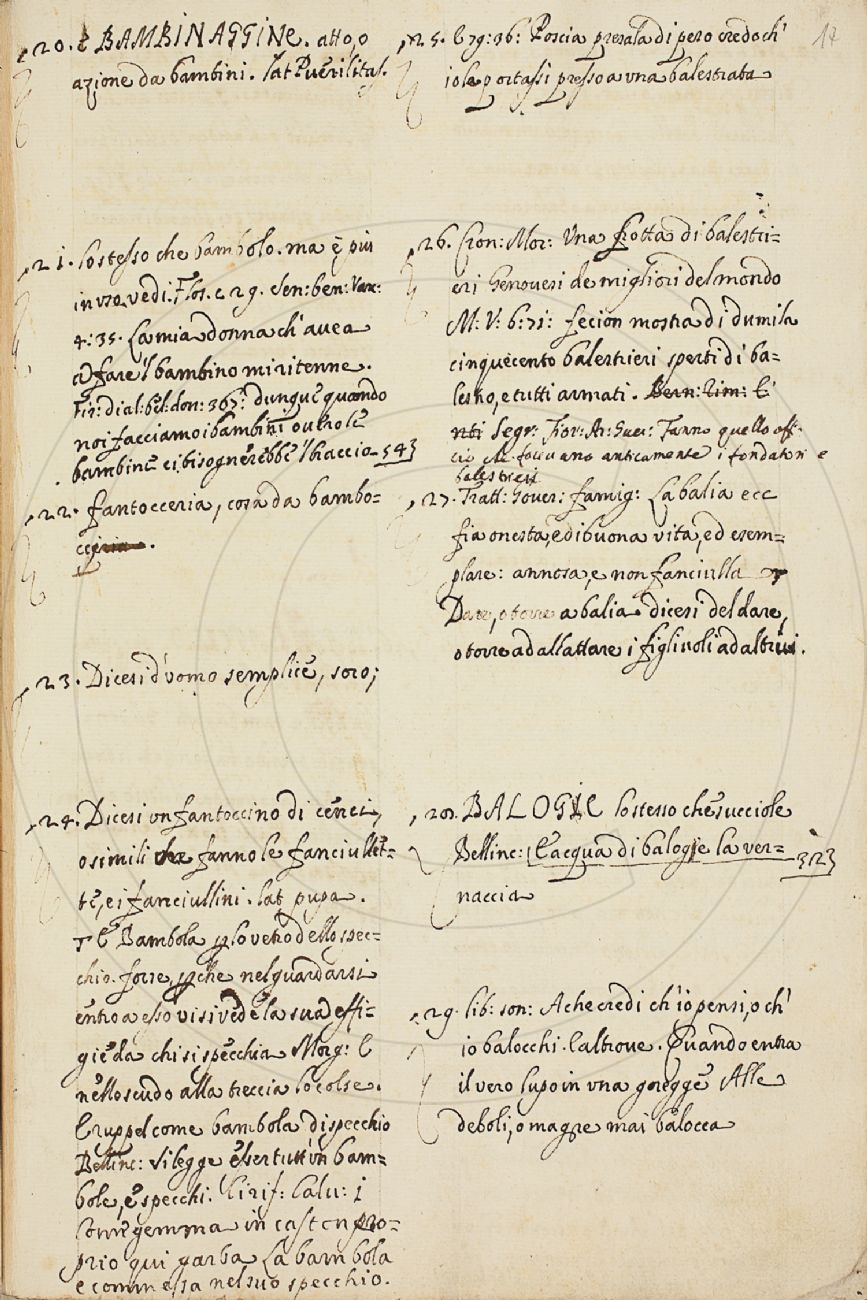 20. è BAMBINAGGINE. atto, o
azione da bambini. lat Puerilitas.
21. lo stesso che bambolo. ma è più
in uso. vedi. Flos. c 29. Sen: ben: Varc:
4: 35. La mia donna ch' avea
a fare 'l bambino mi ritenne.
Fir: dial: bel: don: 367: dunque quando
noi facciamo i bambini o vero le
bambine ci bisognerebbe 'l braccio 543
22. fantocceria, cosa da bambo=
23. Dicesi d'uomo semplice, soro;
24. Dicesi un fantoccino di cenci,
o simili che fanno le fanciullet=
te, e i fanciullini. lat pupa.
E Bambola p lo vetro dello spec=
chio. forse, p che nel guardarsi
entro a esso visi vede la sua effi=
gie da chi si specchia Morg: E
nello scudo alla treccia lo colse.
E ruppel come bambola di specchio
Bellinc: Si legge esser tutt' un bam=
bole, e specchi. Cirif: Calv: i
Come gemma in caston pro=
prio qui garba La bambola
e commessa nel suo specchio.
17
25. E 79: 36: Poscia presala di peso credo ch'
io la portassi presso a una balestrata
26. Cron: Mor: Una frotta di balestri=
eri Genovesi de migliori del mondo
M: V: 6: 71: fecion mostra di dumila
cinquecento balestrieri sperti di ba=
lestro, e tutti armati. Bern: rim: E'
nti Segr: Fior: Ar: Guer: Fanno quello offi=
cio che facevano anticamente i fondatori e
balestrieri
27. Tratt: Gover: famig: La balia ecc
sia onesta, e di buona vita, ed esem=
plare: annosa, e non fanciulla
Dare, o torre a balia dicesi del dare,
o torre ad allattare i figliuoli ad altrui.
28. BALOGIE lo stesso che succiole
Bellinc: E acqua di balogie la ver= 323
naccia
29. lib: son: A che credi ch' io pensi, o ch'
io balocchi. E altrove. Quando entra
il vero lupo in una gregge Alle
deboli, o magre mai balocca